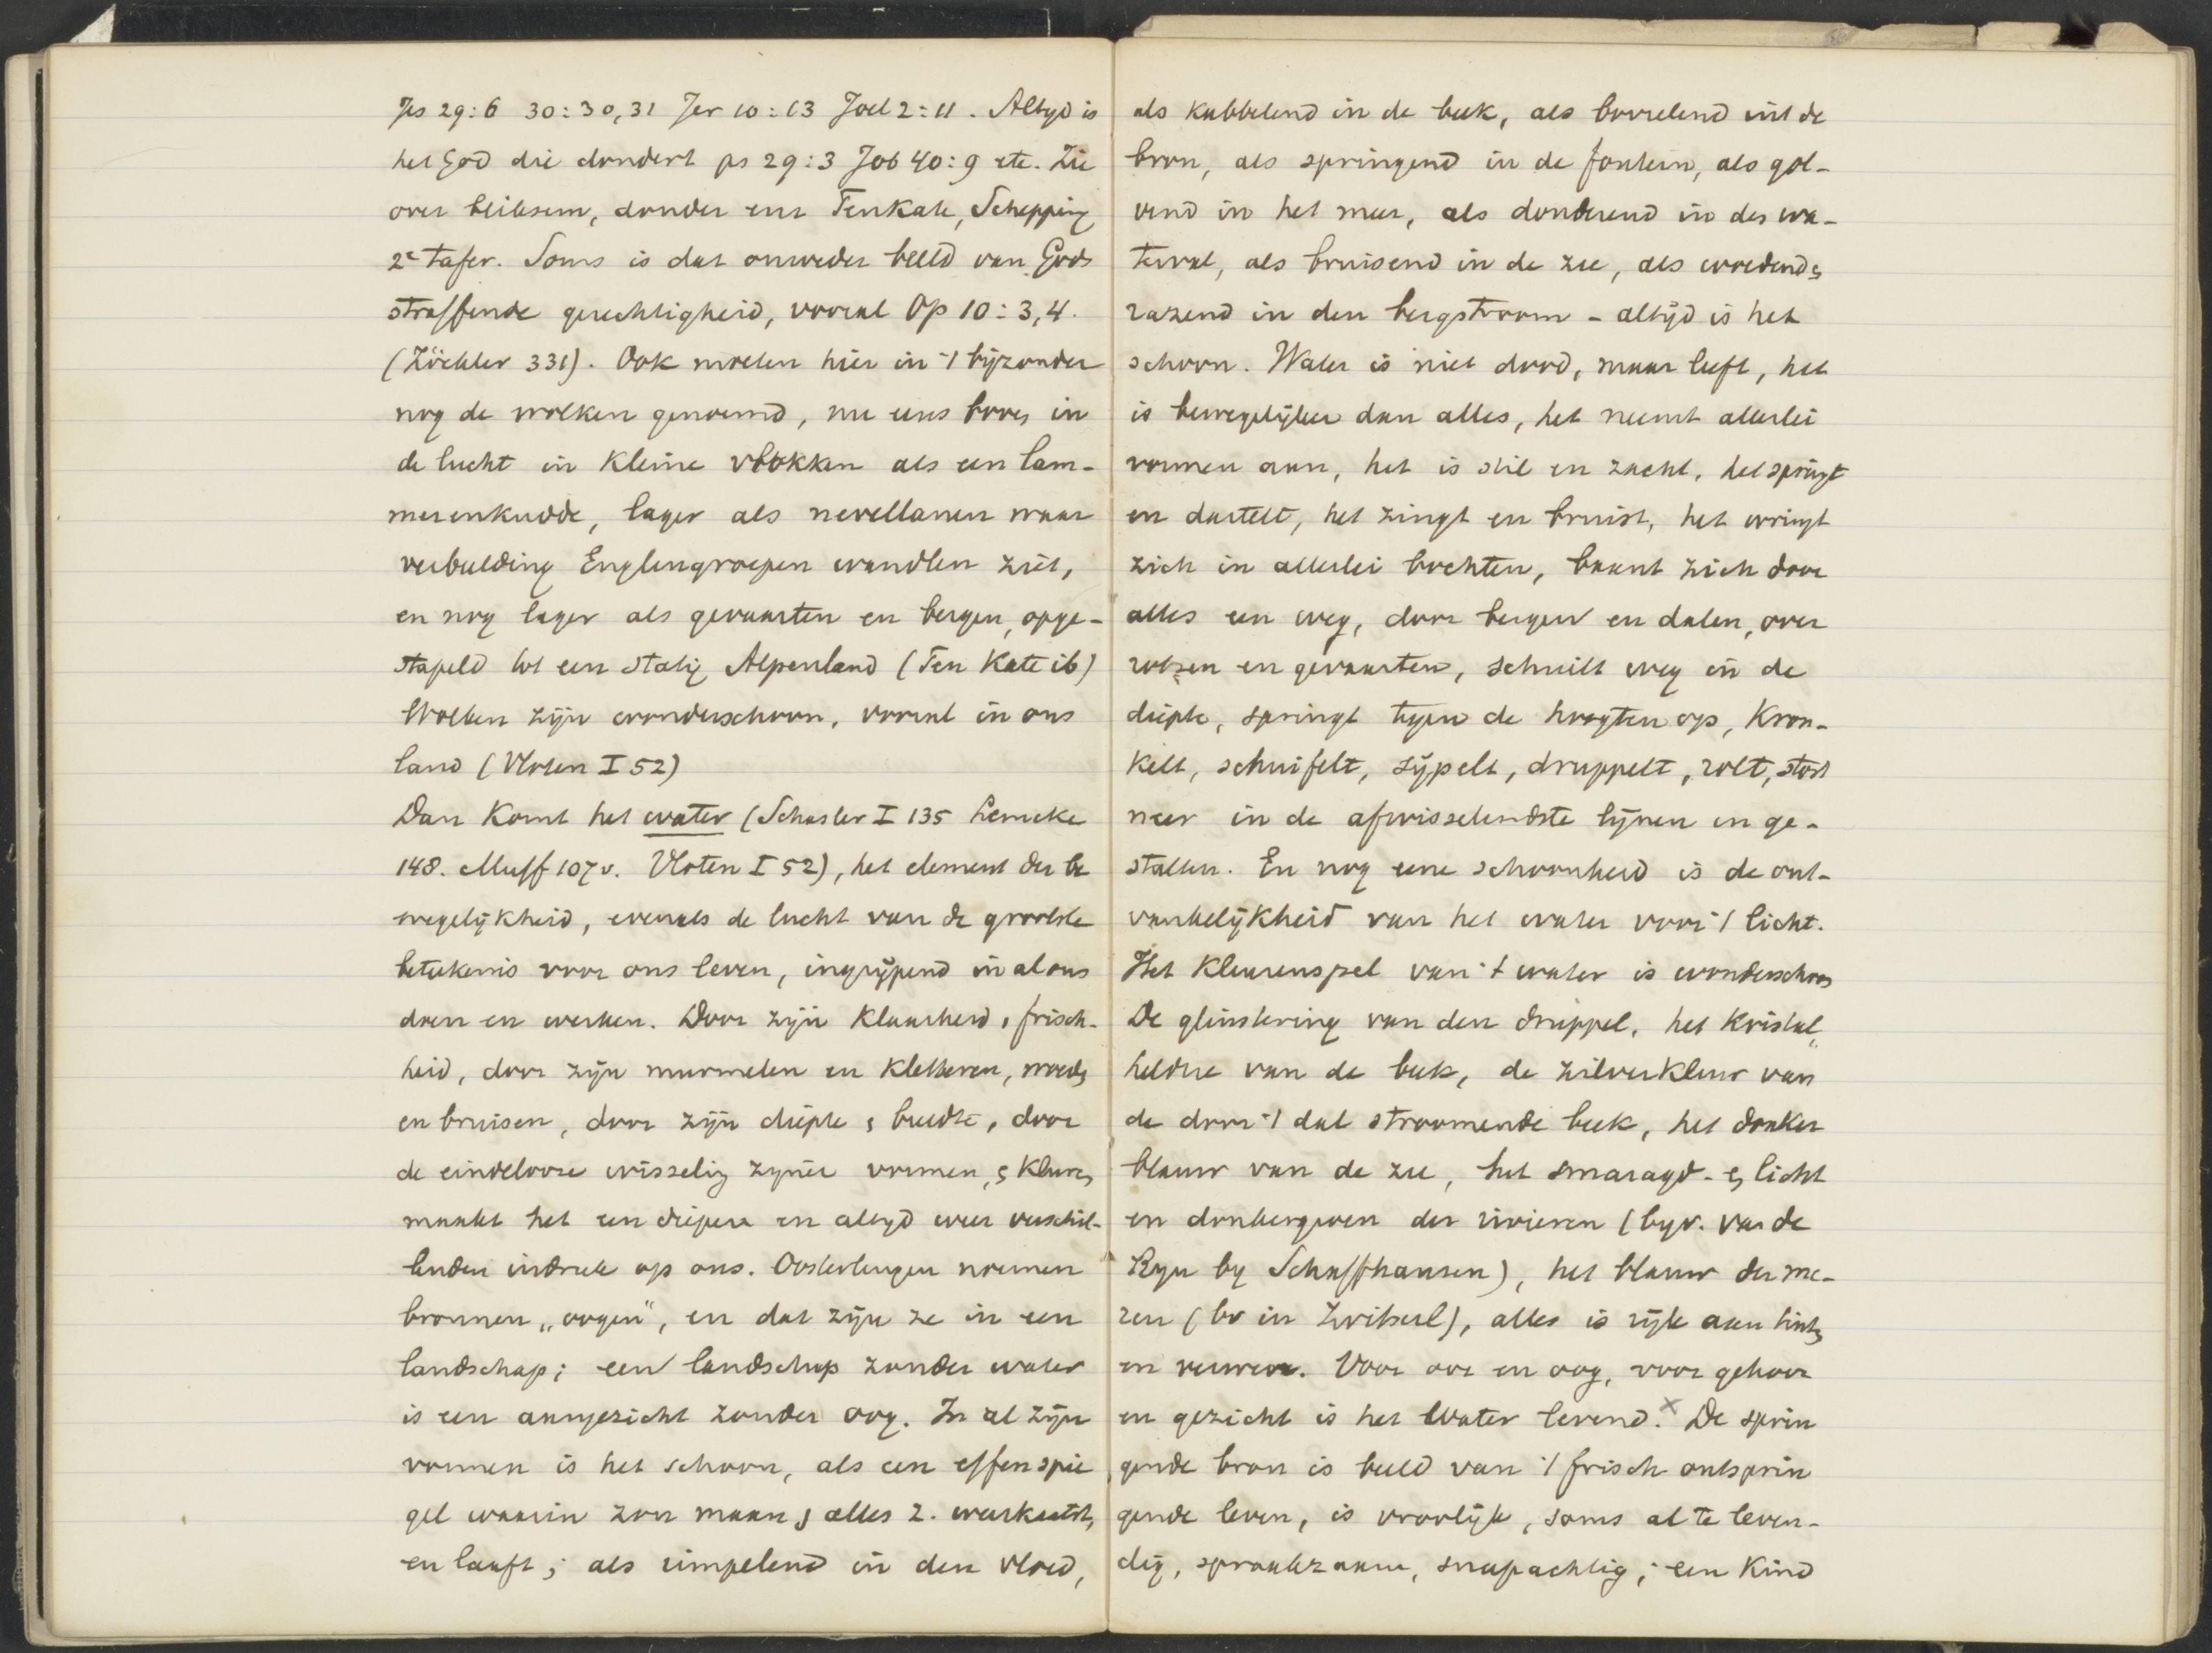 Jes 29:6 30:30,31 Jer 10:13 Joel 2:11. Altyd is
het God die dondert ps 29:3 Job 40:9 etc. Zie
over bliksem, donder enz Ten Kate, Schepping
2e Tafer. Soms is dat onweder beeld van Gods
straffende gerechtigheid, vooral Op 10:3,4.
(Zöckler 331). Ook moeten hier in 't bijzonder
nog de wolken genoemd, nu eens hoog in
de lucht in kleine vlokken als een lam-
merenkudde, lager als nevellanen waar
verbeelding Englengroepen wandlen ziet,
en nog lager als gevaarten en bergen, opge-
stapeld tot een statig Alpenland (Ten Kate ib)
Wolken zijn wonderschoon, vooral in ons
land (Vloten I 52)
Dan komt het water (Schasler I 135 Lemcke
148. Muff 107v. Vloten I 52), het element der be
wegelijkheid, evenals de lucht van de grootste
beteekenis voor ons leven, ingrijpend in al ons
doen en werken. Door zijn klaarheid, frisch-
heid, door zijn murmelen en kletteren, woeds
en bruisen, door zijn diepte & breedte, door
de eindelooze wisselig zyner vormen, & kleuren
maakt het een diepere en altyd weer verschil-
lenden indruk op ons. Oosterlingen noemen
bronnen „oogen", en dat zijn ze in een
landschap; een landschap zonder water
is een aangezicht zonder oog. In al zijn
vormen is het schoon, als een effen spie
gel waarin zon maan & alles z. weerkaatst,
en lauft; als rimpelend in den vloed,
als kabbelend in de beek, als borrelend uit de
bron, als springend in de fontein, als gol-
vend in het meer, als donderend in des wa-
terval, als bruisend in de zee, als woedend &
razend in den bergstroom - altijd is het
schoon. Water is niet dood, maar leeft, het
is bewegelijker dan alles, het neemt allerlei
vormen aan, het is stil en zacht, het springt
en dartelt, het zingt en bruist, het wringt
zich in allerlei bochten, baant zich door
alles een weg, door bergen en dalen, over
rotsen en gevaarten, schuilt weg in de
diepte, springt tegen de hoogten op, kron-
kelt, schuifelt, sijpelt, druppelt, rolt, stort
neer in de afwisselendste lijnen en ge-
stalten. En nog eene schoonheid is de ont-
vankelijkheid van het water voor 't licht.
Het kleurenspel van 't water is wonderschoon
De glinstering van den druppel, het kristal„
heldre van de beek, de zilverkleur van
de door 't dal stroomende beek, het donker
blauw van de zee, het smaragd- & licht
en donkergroen der rivieren (byv. van de
Ryn by Schaffhausen), het blauw der me-
ren (bv in Zwitserl), alles is rijk aan tinten
en verwen. Voor oor en oog, voor gehoor
en gezicht is het Water levend.× De sprin
gende bron is beeld van 't frisch ontsprin
gende leven, is vroolijk, soms al te leven-
dig, spraakzaam, snapachtig; een kind